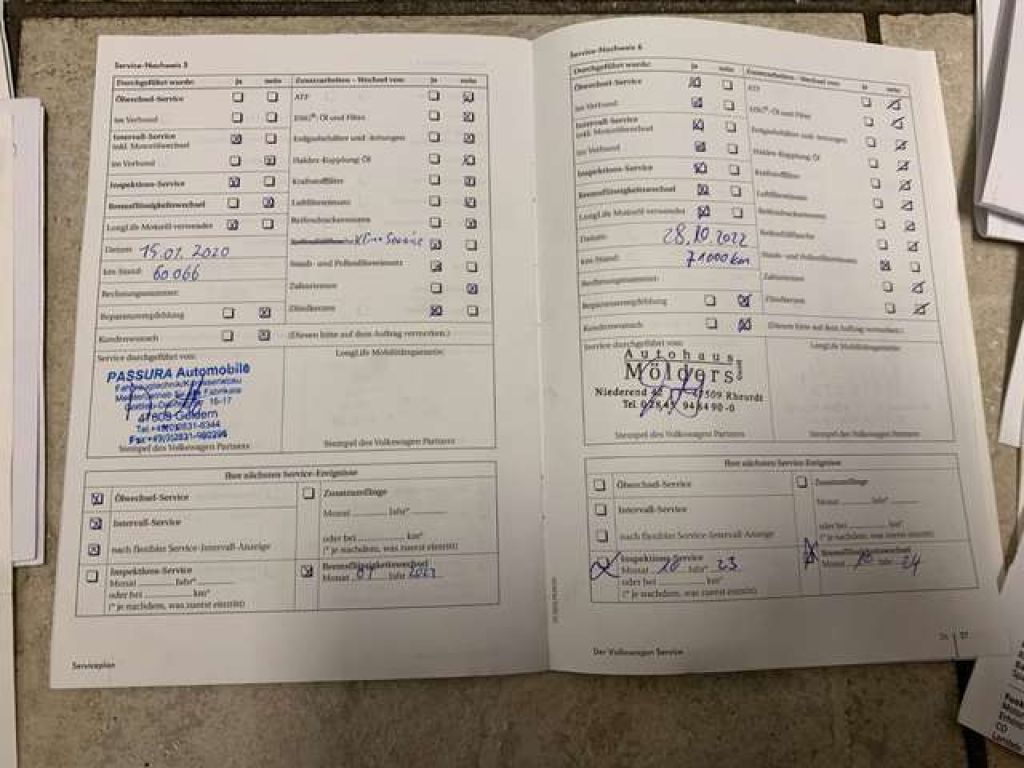 Service-Nachweis 5
Durchgeführt wurde: ja nein
Ölwechsel-Service
im Verbund
Intervall-Service
inkl. Motorölwechsel
im Verbund
Inspektions-Service
Bremsflüssigkeitswechsel
LongLife Motoröl verwendet
Datum: 15.01.2020
km-Stand: 60.066
Rechnungsnummer:
Reparaturempfehlung
Kundenwunsch
Zusatzarbeiten - Wechsel von: ja nein
ATF
DSG®-Öl und Filter
Haldex-Kupplung Öl
Kraftstofffilter
Luftfiltereinsatz
Service
Staub- und Pollenfiltereinsatz
Zahnriemen
Zündkerzen
(Diesen bitte auf dem Auftrag vermerken.)
Service durchgeführt von:
PASSURA Automobile
16-17
Geldern
Stempel des Volkswagen Partners
LongLife Mobilitätsgarantie:
Stempel des Volkswagen Partners
Ihre nächsten Service-Ereignisse
Ölwechsel-Service
Intervall-Service
nach flexibler Service-Intervall-Anzeige
Inspektions-Service
Monat Jahr*
oder bei km*
(* je nachdem, was zuerst eintritt)
Zusatzumfänge
Monat Jahr*
oder bei km*
(* je nachdem, was zuerst eintritt)
Bremsflüssigkeitswechsel
Monat 01 Jahr
Serviceplan
Service-Nachweis 6
Durchgeführt wurde: ja nein
Ölwechsel-Service
im Verbund
Intervall-Service
inkl. Motorölwechsel
im Verbund
Inspektions-Service
Bremsflüssigkeitswechsel
LongLife Motoröl verwendet
Datum: 28.10.2022
km-Stand: 71000km
Rechnungsnummer:
Reparaturempfehlung
Kundenwunsch
Zusatzarbeiten - Wechsel von: ja nein
ATF
DSG®-Öl und Filter
Haldex-Kupplung Öl
Kraftstofffilter
Luftfiltereinsatz
Staub- und Pollenfiltereinsatz
Zahnriemen
Zündkerzen
(Diesen bitte auf dem Auftrag vermerken.)
Service durchgeführt von:
Autohaus
Mölders
Niederend 42 Rheurdt
Tel.
Stempel des Volkswagen Partners
LongLife Mobilitätsgarantie:
Stempel des Volkswagen Partners
Ihre nächsten Service-Ereignisse
Ölwechsel-Service
Intervall-Service
nach flexibler Service-Intervall-Anzeige
Inspektions-Service
Monat 10 Jahr 23
oder bei km*
(* je nachdem, was zuerst eintritt)
Zusatzumfänge
Monat Jahr*
oder bei km*
(* je nachdem, was zuerst eintritt)
Bremsflüssigkeitswechsel
Monat 10 Jahr 24
Der Volkswagen Service